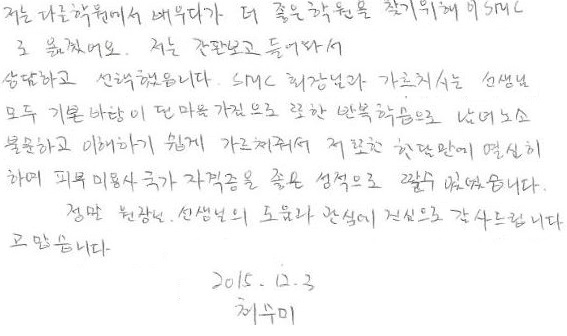 저는 다른학원에서 배우다가 더 좋은학원을 찾기위해 이 SMC
로 옮겼어요. 저는 간판보고 들어와서
상담하고 선택했읍니다. SMC 회장님과 가르치시는 선생님
모두 기본 바탕이 된 마음가짐으로 또한 반복학습으로 남녀노소
불문하고 이해하기 쉽게 가르쳐줘서 저 또한 한달만에 열심히
하여 피부미용사 국가 자격증을 좋은 성적으로 딸수 있었습니다.
정말 원장님. 선생님의 도움과 관심에 진심으로 감사드립니다
고맙습니다
2015. 12. 3